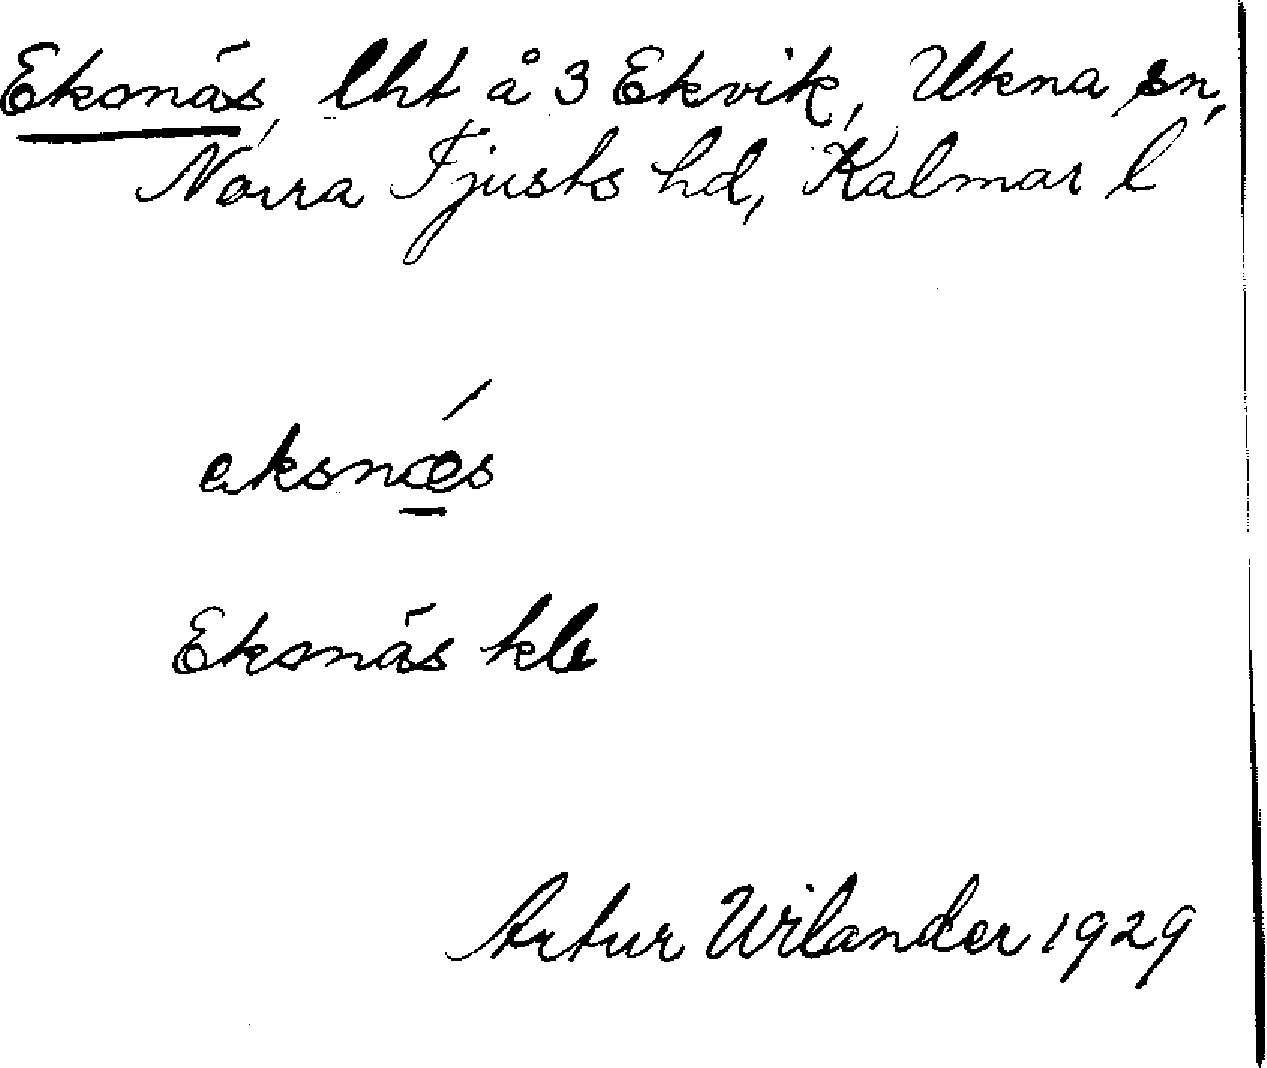 Eksnäs, lht å 3 Ekvik, Ukna sn,
Norra Tjusts hd, Kalmar l
eksnæ´s
Eksnäs kle
Artur Wilander 1929